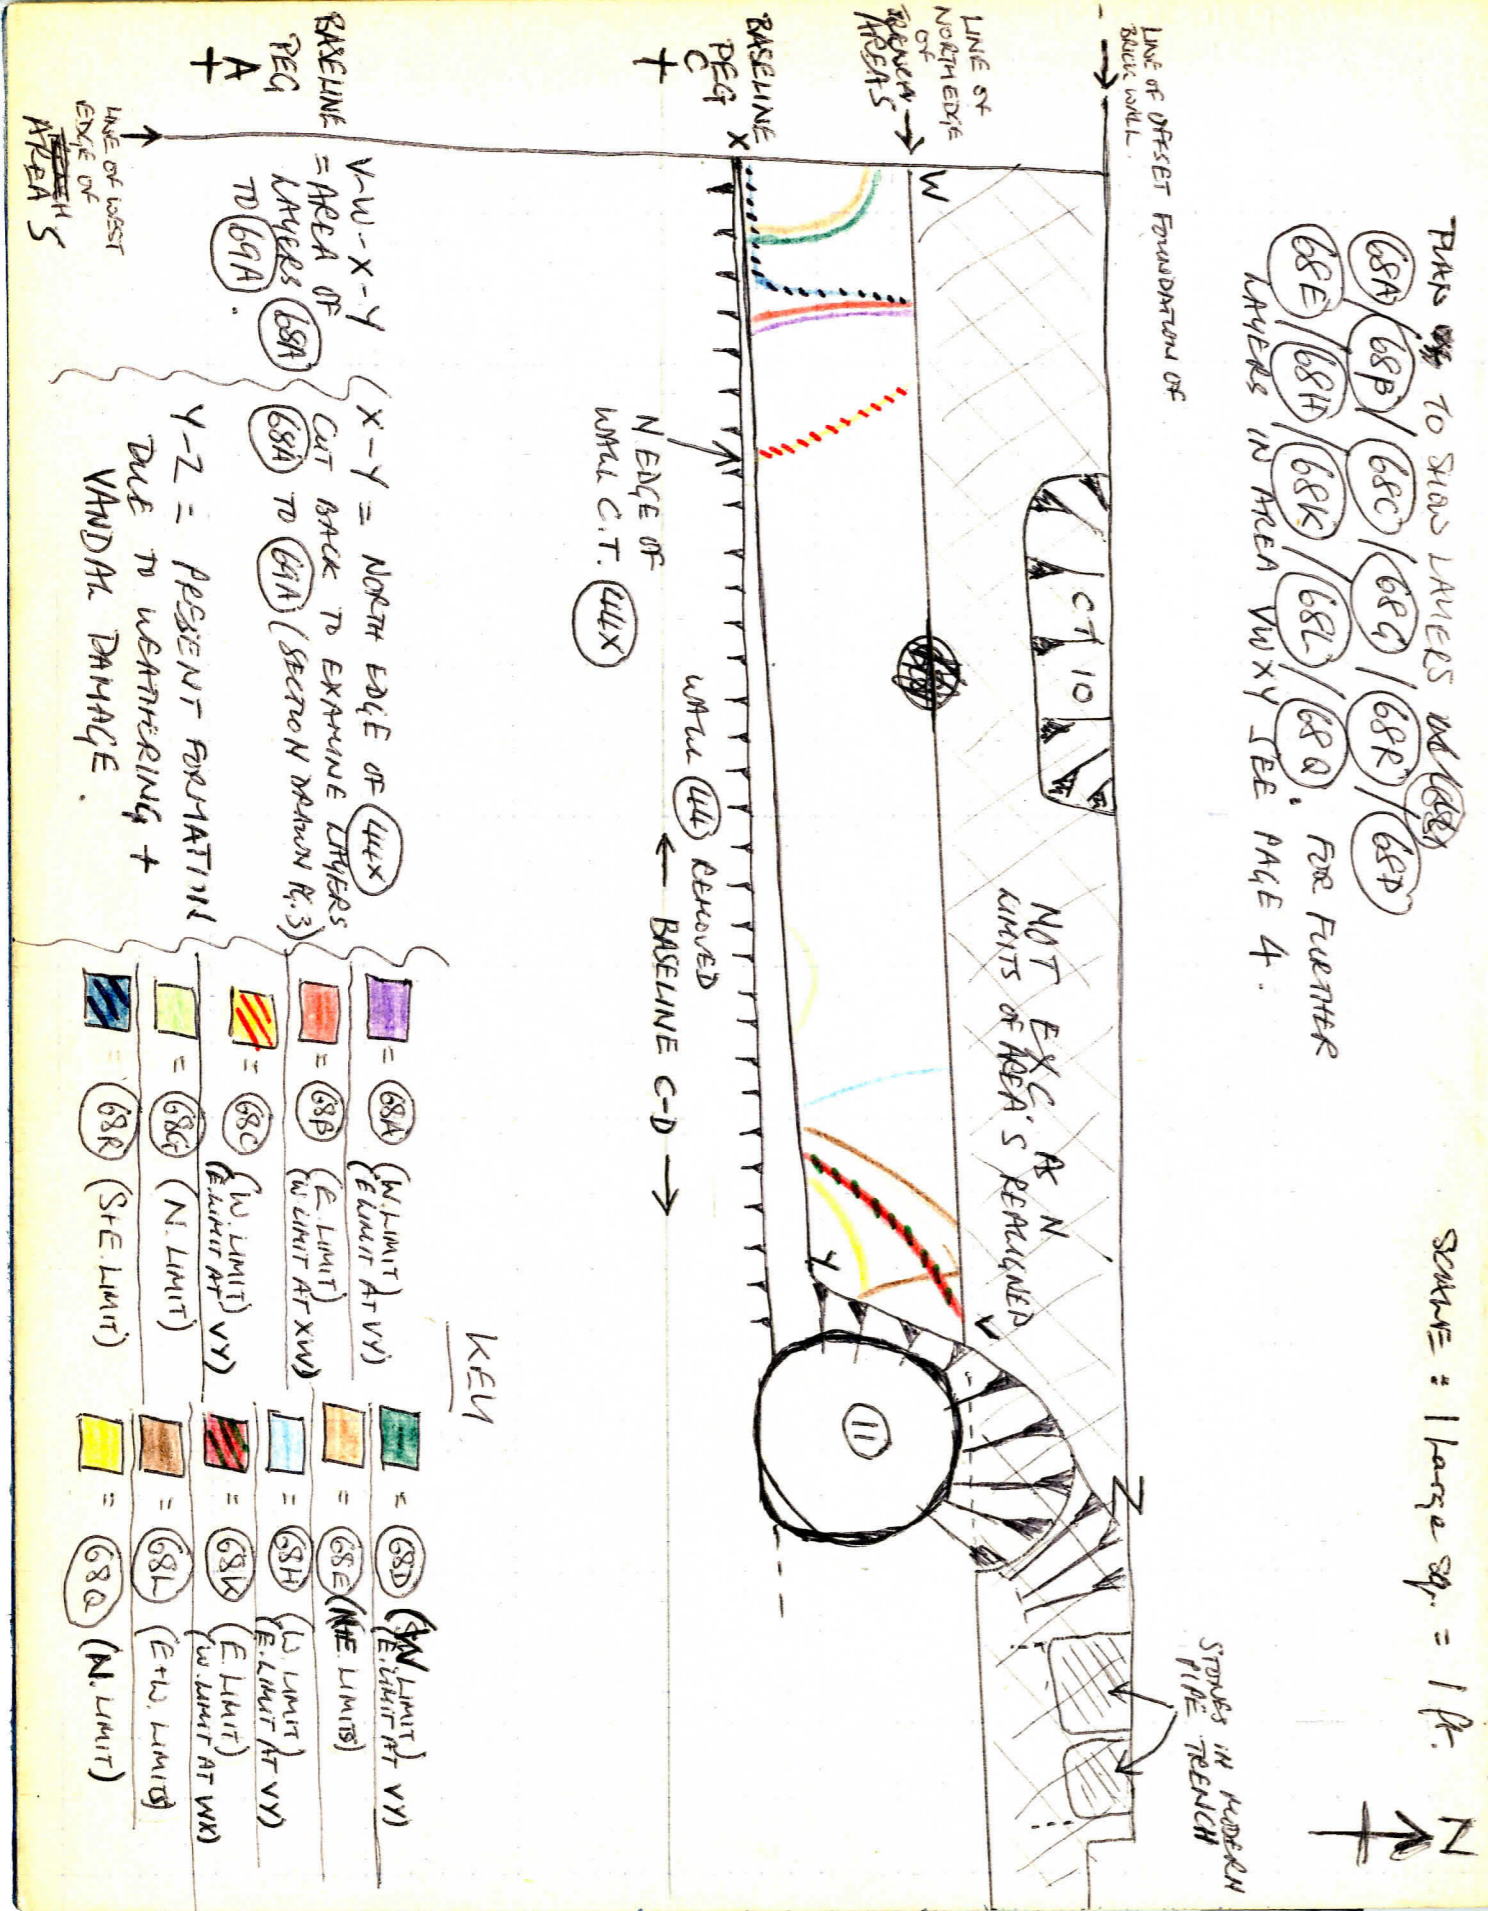 PLAN TO SHOW LAYERS
68A / 68B / 68C / 68G / 68R / 68D
68E / 68H / 68K / 68L / 68Q. FOR FURTHER
LAYERS IN AREA VWXY SEE PAGE 4.
SCALE : 1 Large sq. = 1 ft.
N
LINE OF OFFSET FOUNDATION OF
BRICK WALL.
LINE OF
NORTH EDGE
OF
AREAS
BASELINE
PEG
C
+
BASELINE
PEG
A
+
LINE OF WEST
EDGE OF
AREAS
W
X
Y
Z
CT 10
NOT EXC AS N
LIMITS OF AREA'S REALIGNED
11
STONES IN MODERN
PIPE TRENCH
N. EDGE OF
WALL C.T. 44X
WALL 44 REMOVED
← BASELINE C-D →
V-W-X-Y
= AREA OF
LAYERS 68A
TO 69A.
X-Y = NORTH EDGE OF 44X
CUT BACK TO EXAMINE LAYERS
68A TO 69A (SECTION DRAWN PG.3)
Y-Z = PRESENT FORMATION
DUE TO WEATHERING +
VANDAL DAMAGE.
KEY
= 68A (W. LIMIT)
(E LIMIT AT VY)
= 68B (E. LIMIT)
(W LIMIT AT XW)
= 68C (W. LIMIT)
(E. LIMIT AT VY)
= 68G (N. LIMIT)
= 68R (S+E. LIMIT)
= 68D (W LIMIT)
(E. LIMIT AT VY)
= 68E (N+E. LIMITS)
= 68H (W. LIMIT)
(E. LIMIT AT VY)
= 68K (E. LIMIT)
(W. LIMIT AT WX)
= 68L (E+W. LIMITS)
= 68Q (N. LIMIT)